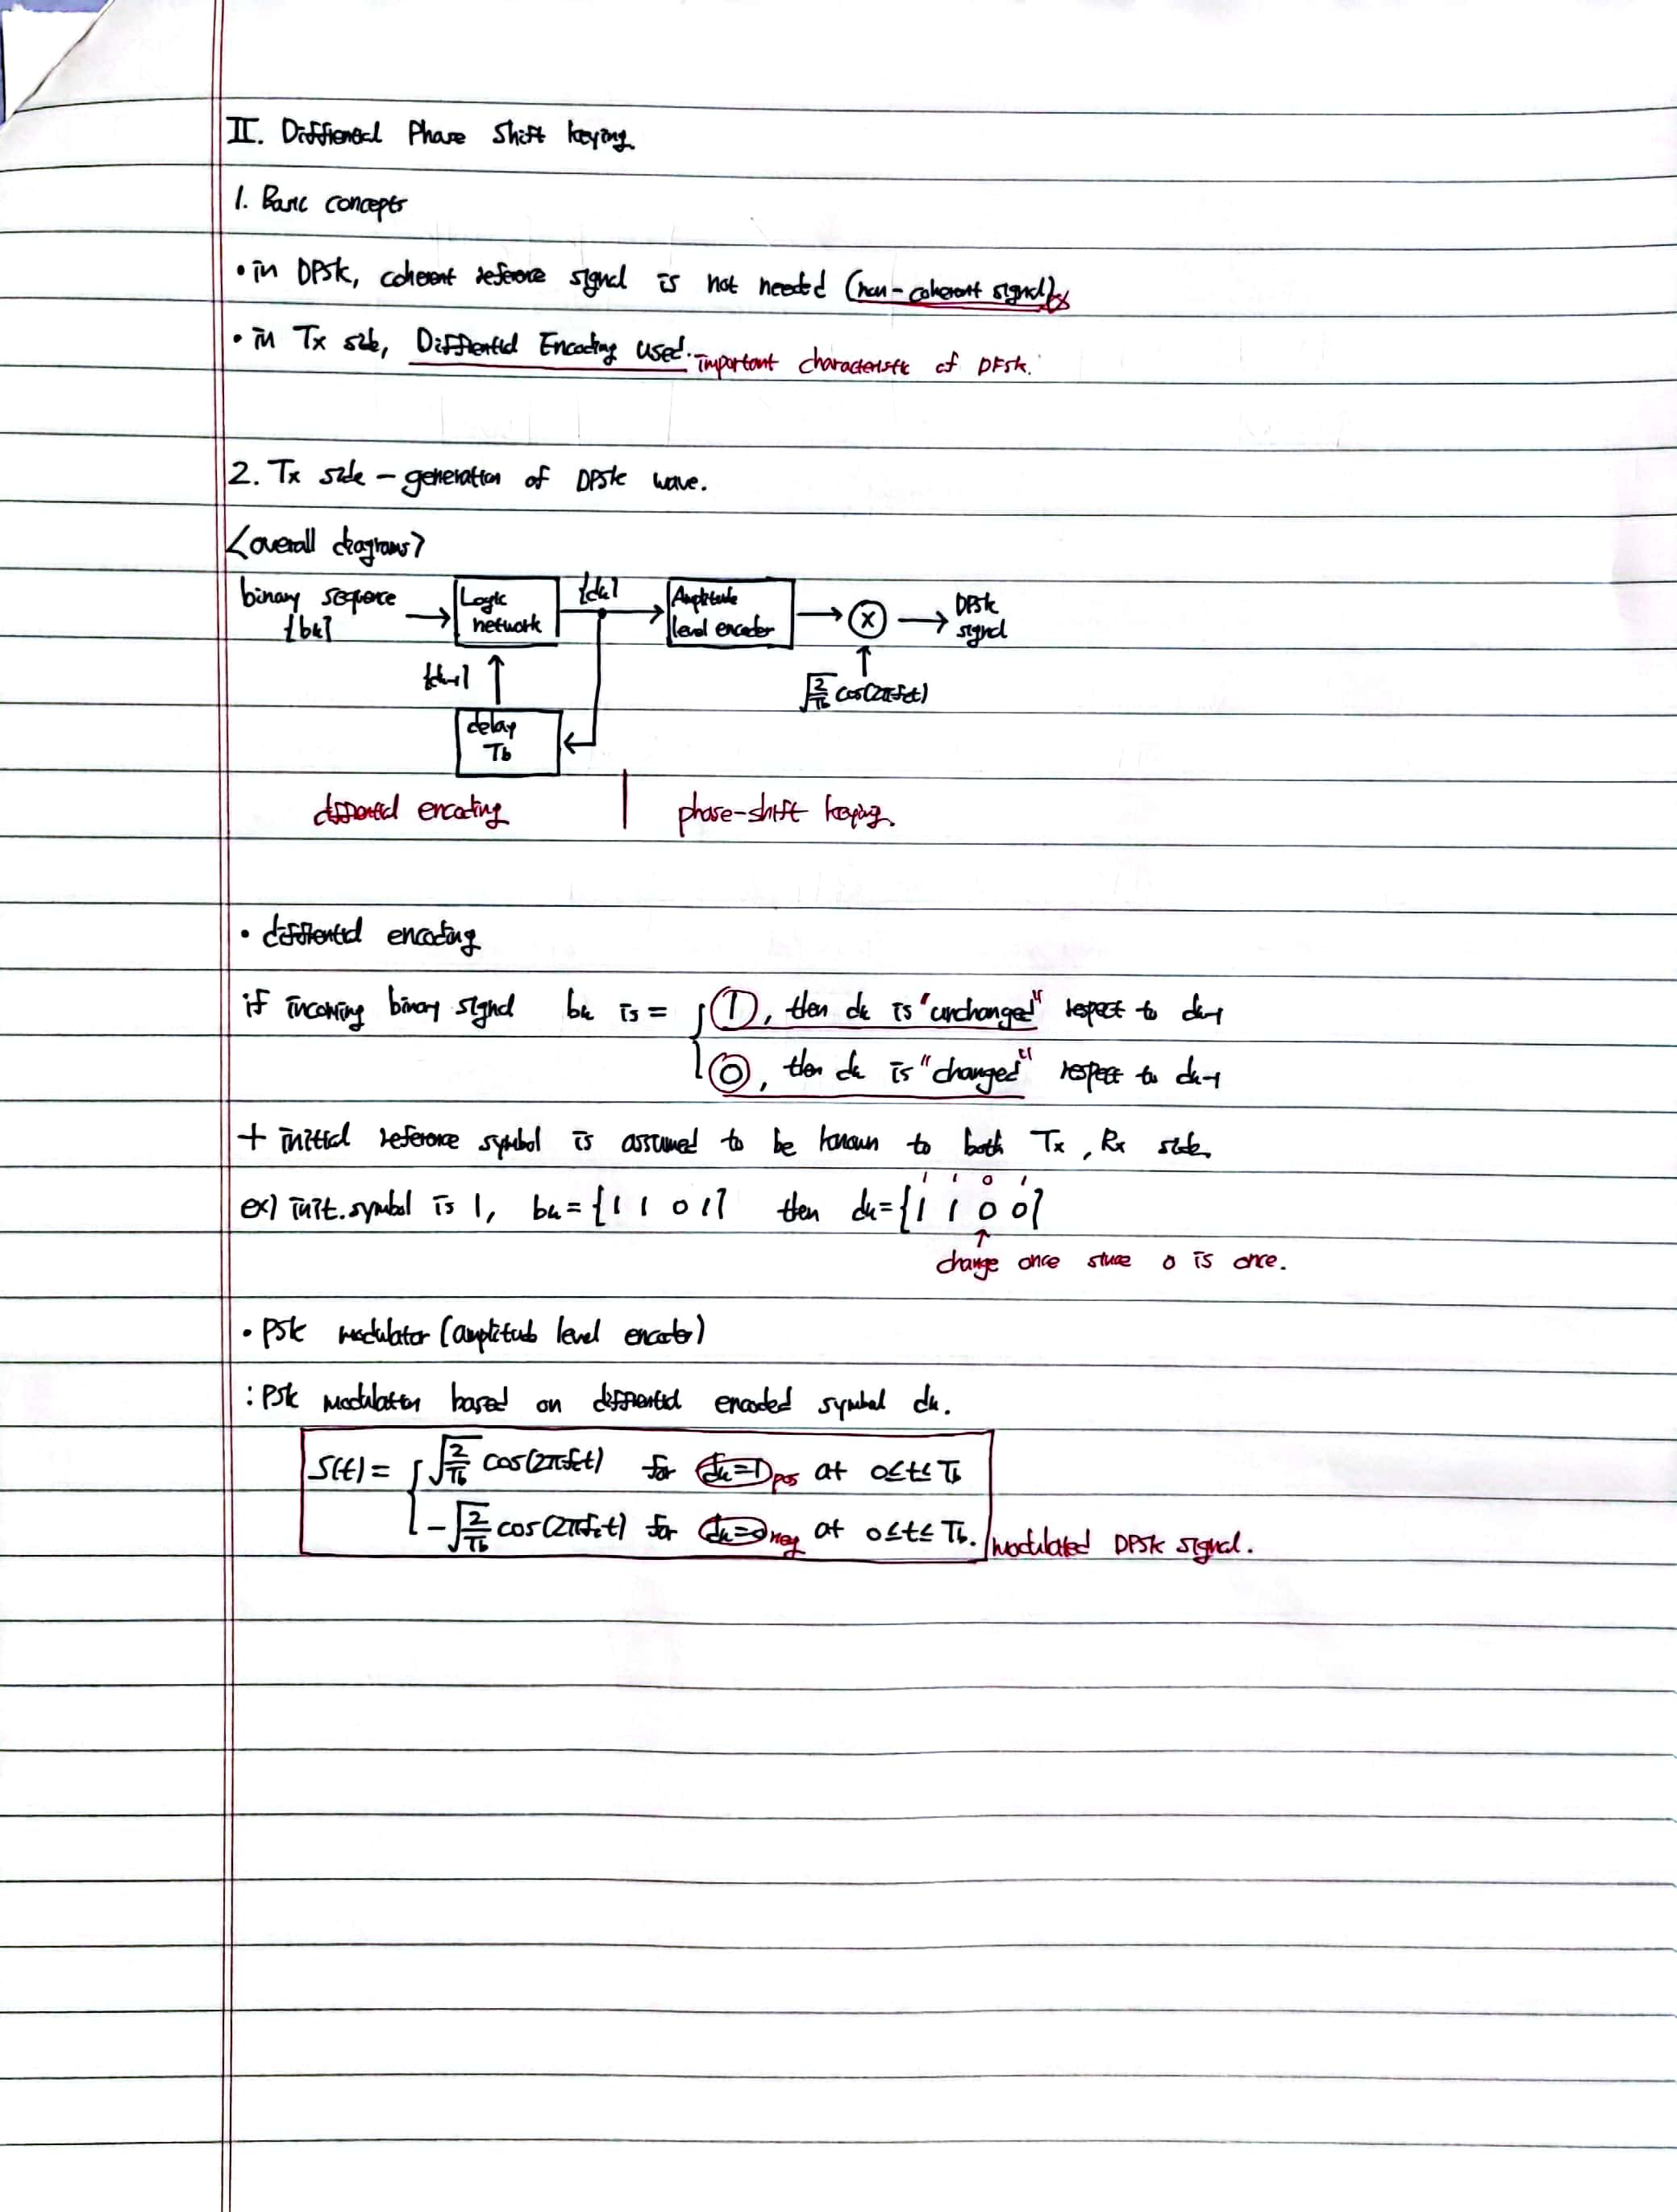 II. Differential Phase Shift keying
1. Basic concepts
• in DPSK, coherent reference signal is not needed (non-coherent signal)
• in Tx side, Differential Encoding used. important characteristic of DPSK.
2. Tx side - generation of DPSK wave.
<overall diagrams>
binary sequence {bk}
Logic network
{dk}
Amplitude level encoder
X
DPSK signal
{dk-1}
√(2/Tb) cos(2πfct)
delay Tb
differential encoding | phase-shift keying.
• differential encoding
if incoming binary signal bk is = { 1, then dk is "unchanged" respect to dk-1
0, then dk is "changed" respect to dk-1
+ initial reference symbol is assumed to be known to both Tx, Rx side.
1 1 0 1
ex) init. symbol is 1, bk = {1 1 0 1} then dk = {1 1 0 0}
↑
change once since 0 is once.
• PSK modulator (amplitude level encoder)
: PSK modulation based on differential encoded symbol dk.
S(t) = { √(2/Tb) cos(2πfct) for dk=1 pos at 0≤t≤Tb
-√(2/Tb) cos(2πfct) for dk=0 neg at 0≤t≤Tb. modulated DPSK signal.